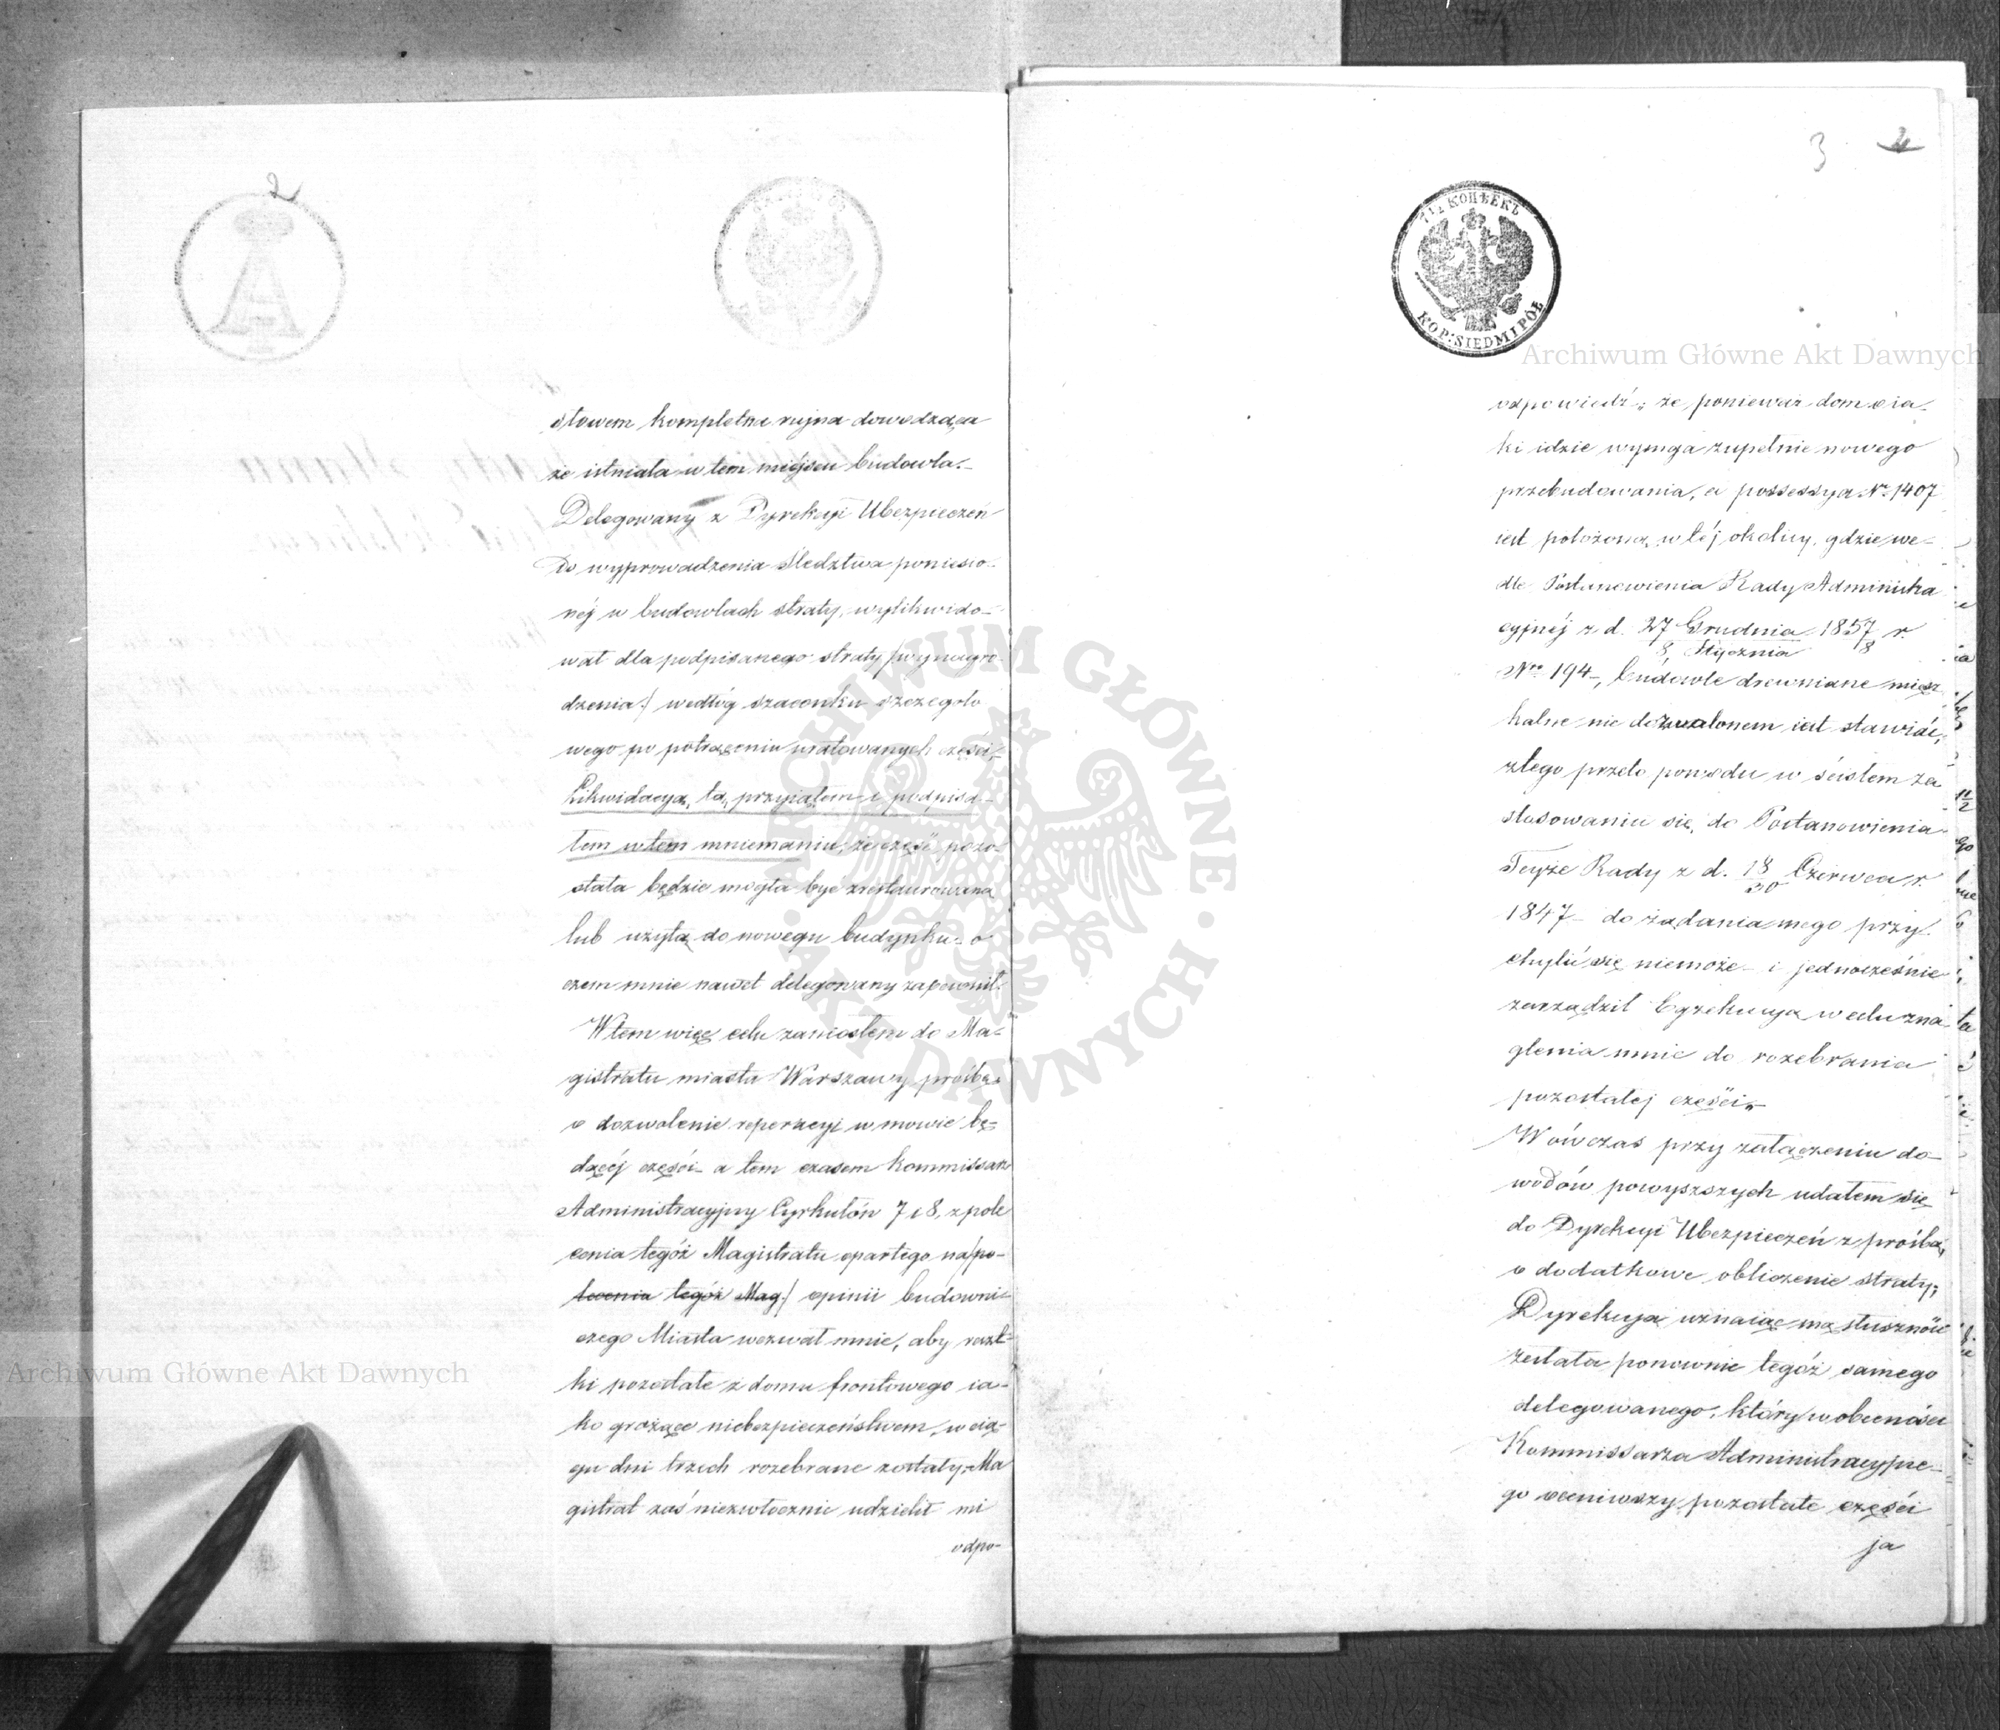 2
słowem kompletna rujna dowodząca
że istniała w tem miejscu budowla.–
Delegowany z Dyrekcyi Ubezpieczeń
do wyprowadzenia śledztwa poniesio-
néj w budowlach straty, wylikwido-
wał dla podpisanego straty /wynagro-
dzenia/ według szacunku szczegóło
wego po potrąceniu uratowanych części,–
Likwidacyą tą przyiąłem i podpisa-
łem w tem mniemaniu, że część pozo-
stała będzie mogła być zrestaurowaną
lub użytą do nowego budynku – o
czem mnie nawet delegowany zapewnił.
W tem więc celu zaniosłem do Ma-
gistratu miasta Warszawy prośbę
o dozwolenie reperacyi w mowie bę-
dącéj części – a tem czasem Kommissarz
Administracyjny Cyrkułów 7 i 8, z pole
cenia tegóż Magistratu opartego na /po-
lecenia tegóż Mag/ opinii budowni-
czego Miasta wezwał mnie, aby reszt-
ki pozostałe z domu frontowego ia-
ko grożące niebezpieczeństwem, w cią-
gu dni trzech rozebrane zostały, Ma
gistrat zaś niezwłocznie udzielił mi
odpo-
3 2
7 1/2 КОПѢЕКЪ
KOP: SIEDM I PÓŁ
odpowiedź; że ponieważ dom o ia-
ki idzie wymga zupełnie nowego
przebudowania, a possessya No 1407
iest położoną w téj okolicy, gdzie we-
dle Postanowienia Rady Administra
cyjnéj z d. 27 Grudnia 1857 r.
8 Stycznia 8
Nro 194–, budowle drewniane miesz
kalne nie dozwolonem iest stawiać,
z tego przeto powodu w ścisłem za
stosowaniu się do Postanowienia
Teyże Rady z d. 18/30 Czerwca r.
1847 – do żądania mego przy-
chylić się niemoże – i jednocześnie
zarządził Egzekucyą w celu zna
glenia mnie do rozebrania
pozostałej części,–
Wówczas przy załączeniu do-
wodów powyższych udałem się
do Dyrekcyi Ubezpieczeń z prośbą,
o dodatkowe obliczenie straty;
Dyrekcya uznaiąc mą słuszność
zesłała ponownie tegóż samego
delegowanego, który w obecności
Kommissarza Administracyjne-
go oceniwszy pozostałe części
ja
Archiwum Główne Akt Dawnych
Archiwum Główne Akt Dawnych
ARCHIWUM GŁÓWNE · AKT DAWNYCH ·